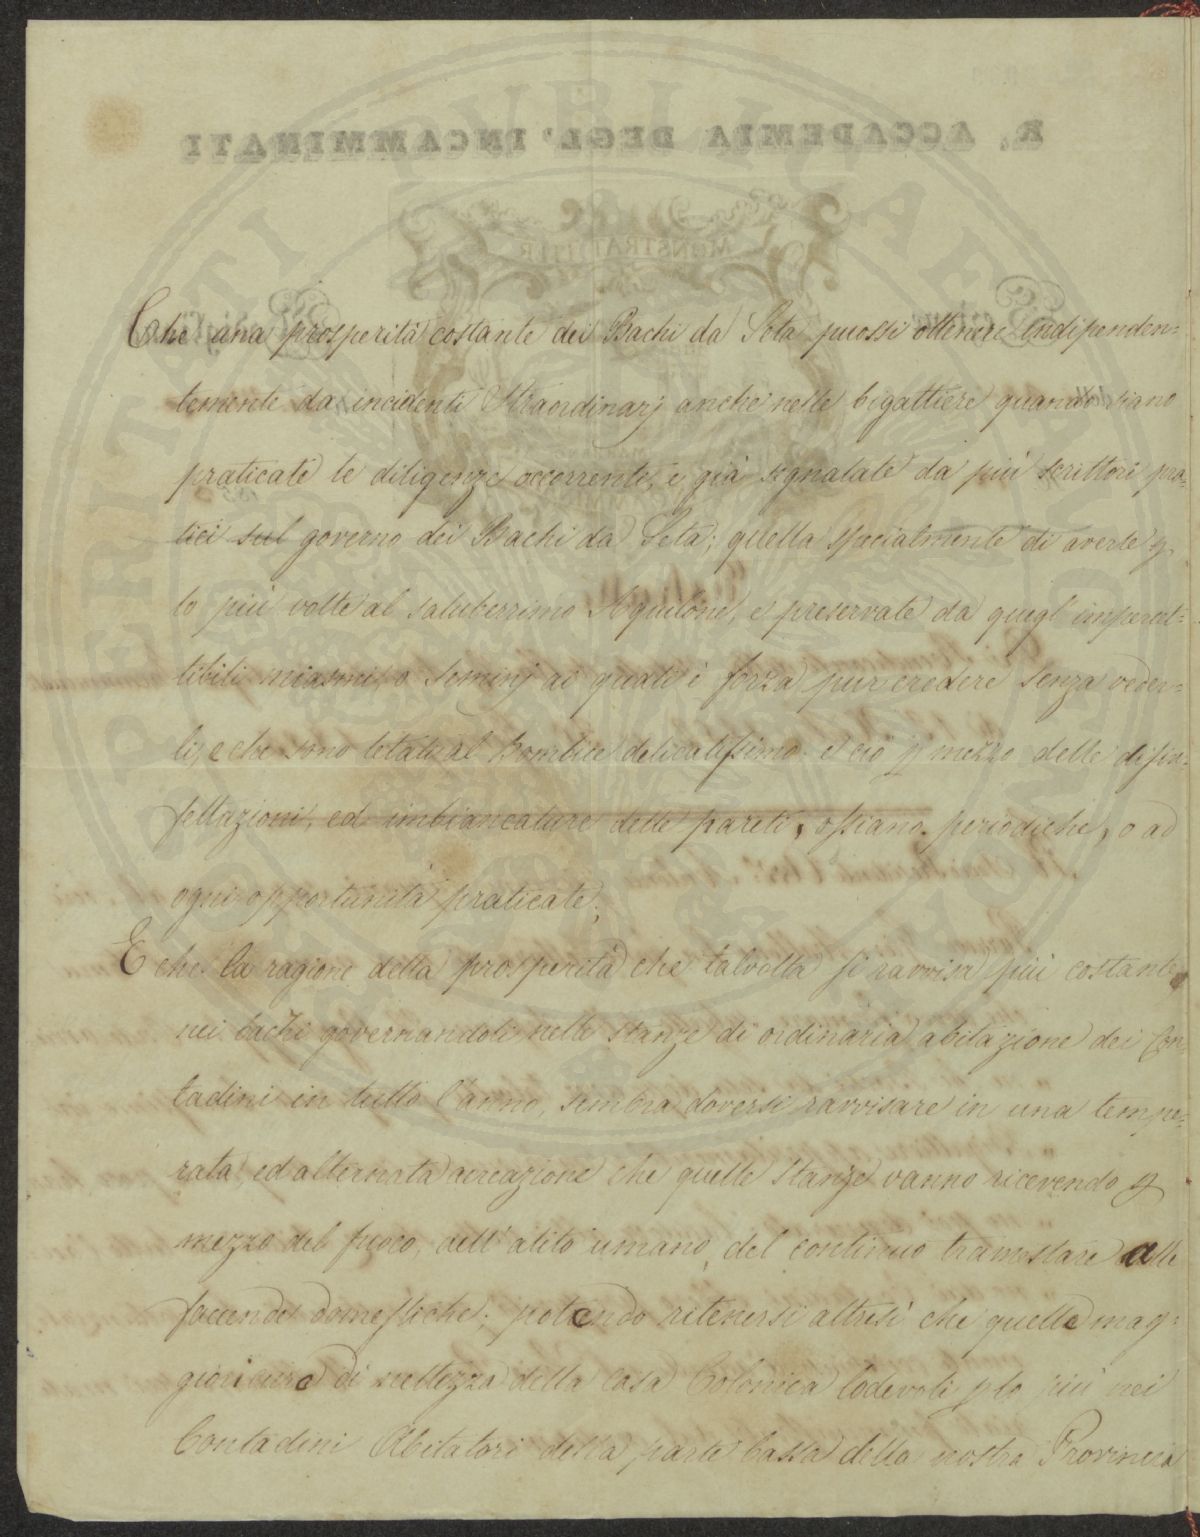 Che una prosperità costante dei Bachi da Seta puossi ottenere indipenden=
temente da incidenti straordinarj anche nelle bigattiere quando siano
praticate le diligenze occorrenti, e già segnalate da più scrittori pra=
tici sul governo dei Bachi da Seta; quella specialmente di averle p
lo più volte al saluberrimo Aquilone, e preservate da quegl'
miasmi, o ai quali è forza pur credere senza veder=
li, e che sono letali al Bombice delicatissimo e ciò p mezzo delle disin=
fettazioni, ed imbiancature delle pareti, ossiano periodiche, o ad
ogni opportunità praticate;
E che la ragione della prosperità che talvolta si ravvisa più costante
nei bachi governandoli nelle stanze di ordinaria abitazione dei Con=
tadini in tutto l'anno, sembra doversi ravvisare in una tempe=
rata, ed alternata aereazione che quelle stanze vanno ricevendo p
mezzo del fuoco, dell'alito umano, del continuo tramestare alle
faccende domestiche; potendo ritenersi altresì che quelle mag=
giori cure di nettezza della casa Colonica lodevoli p lo più nei
Contadini Abitatori della parte bassa della nostra Provincia
R. ACCADEMIA DEGL' INCAMMINATI
MONSTRATUR